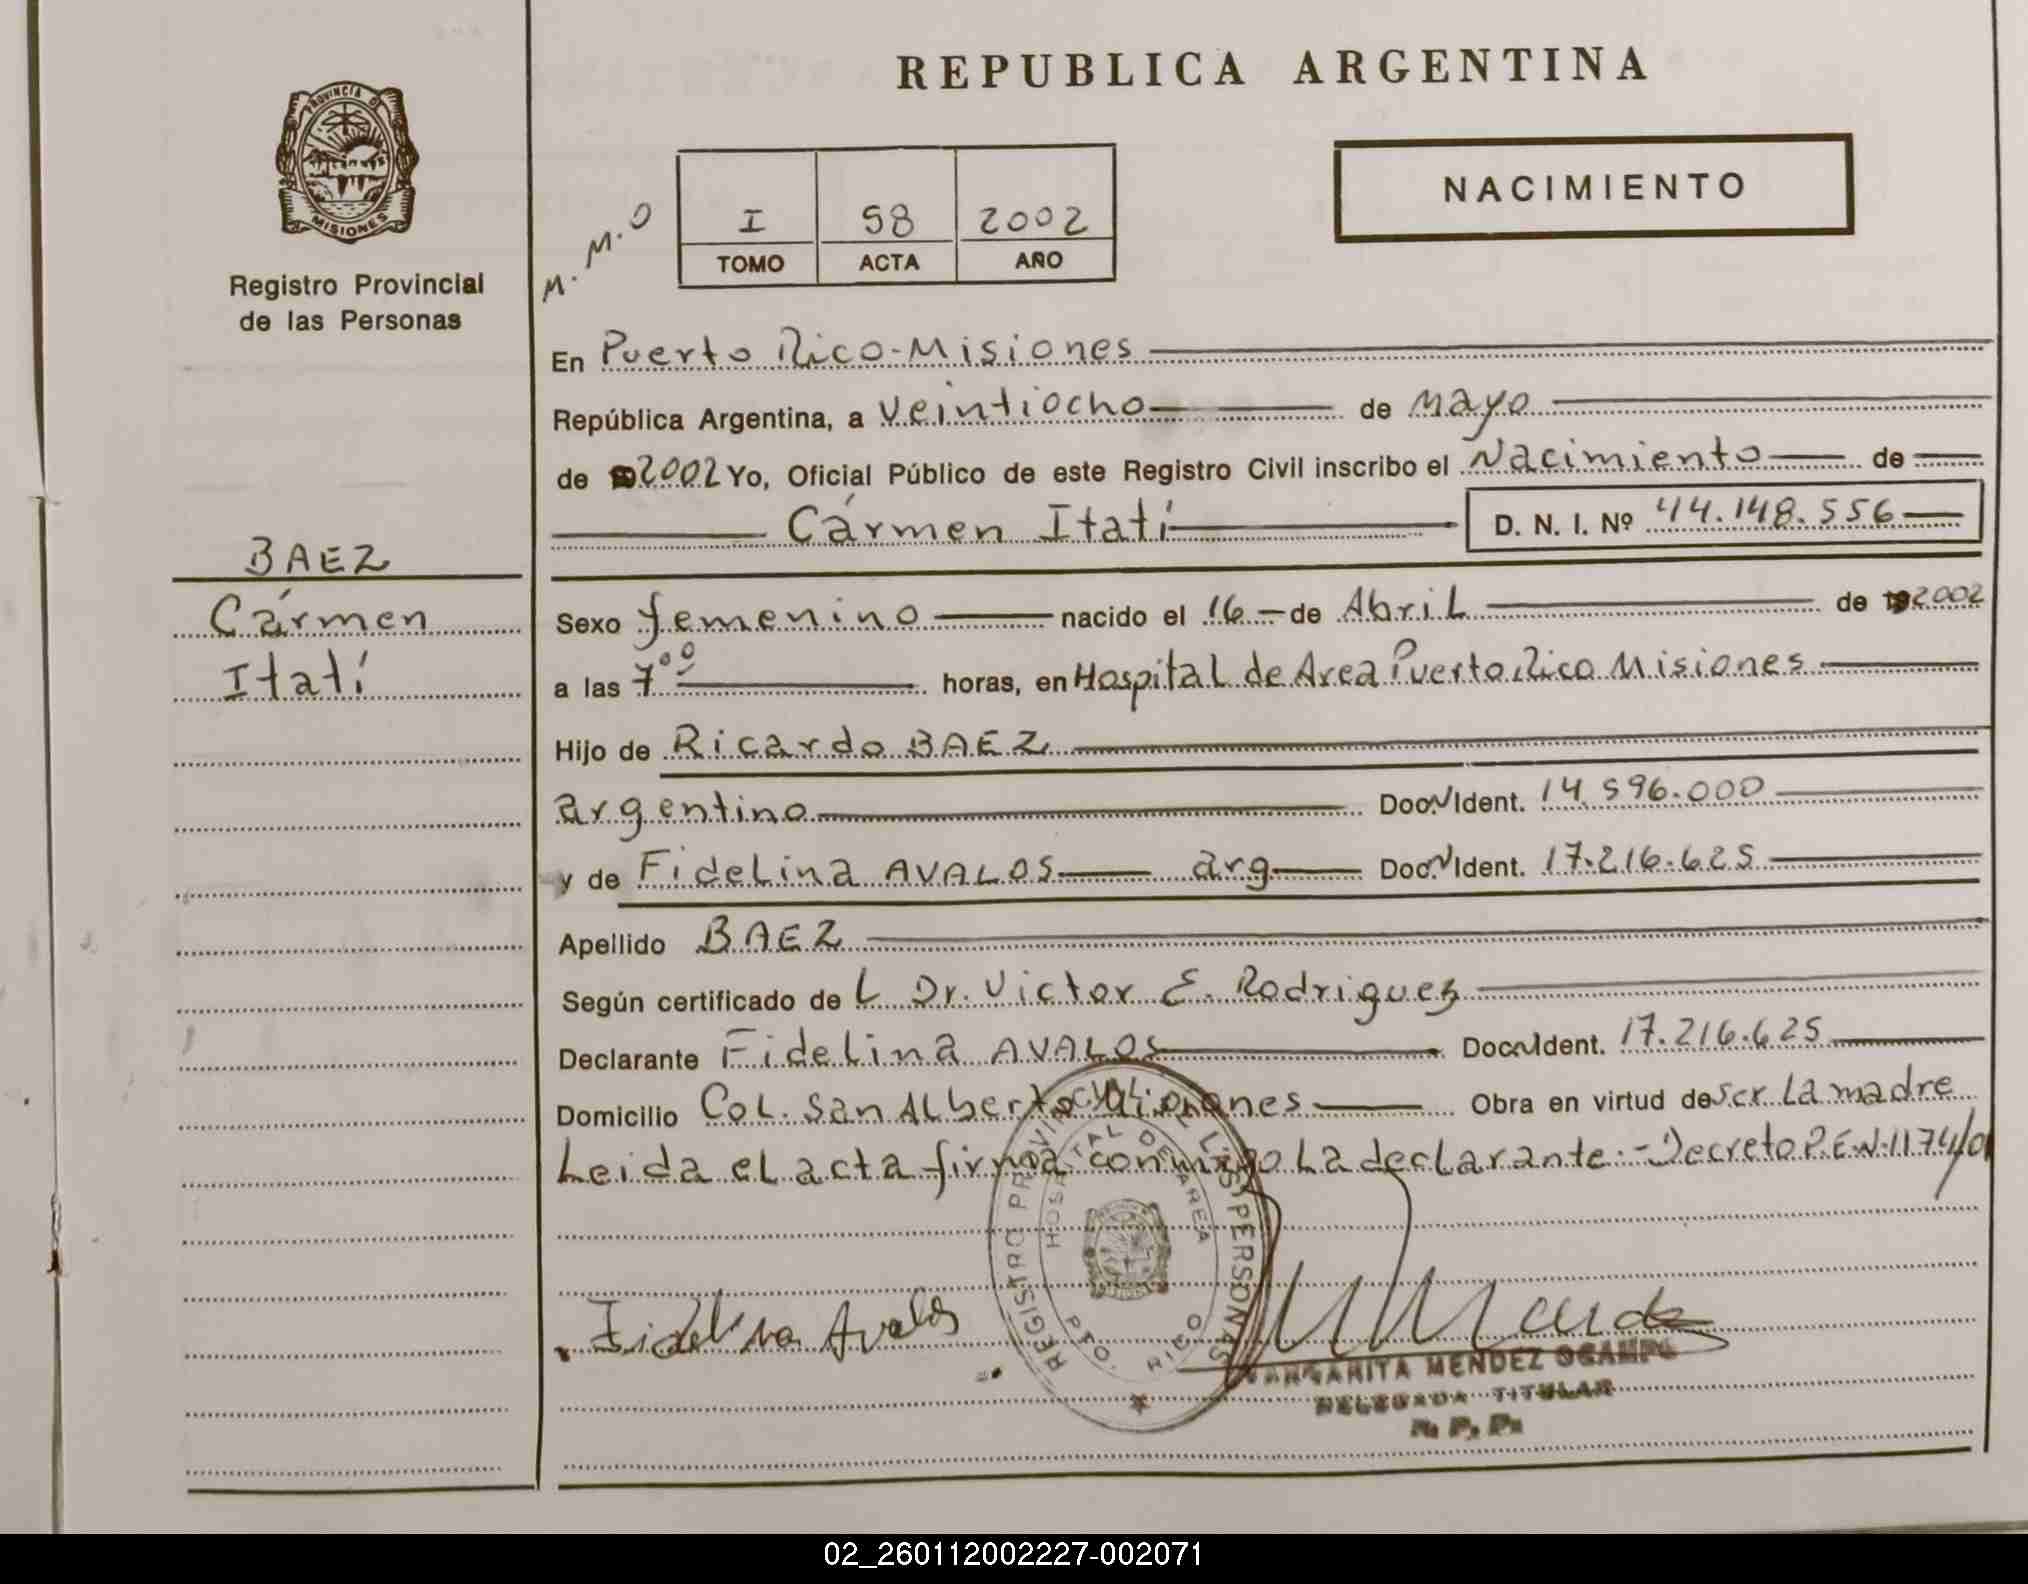 REPUBLICA ARGENTINA
PROVINCIA D
MISIONES
Registro Provincial
de las Personas
BAEZ
Cármen
Itatí
M. M.O
I 58 2002
TOMO ACTA AÑO
NACIMIENTO
En Puerto Rico-Misiones
República Argentina, a veintiocho de mayo
de 2002 Yo, Oficial Público de este Registro Civil inscribo el Nacimiento de
Cármen Itatí D. N. I. Nº 44.148.556
Sexo femenino nacido el 16 de Abril de 2002
a las 7°° horas, en Hospital de Area Puerto Rico Misiones
Hijo de Ricardo BAEZ
argentino Doc. Ident. 14.596.000
y de Fidelina AVALOS arg Doc. Ident. 17.216.625
Apellido BAEZ
Según certificado de L Dr. Victor E. Rodriguez
Declarante Fidelina AVALOS Doc. Ident. 17.216.625
Domicilio Col. San Alberto Misiones Obra en virtud de ser La madre
Leida el acta firma conmigo La declarante.- Decreto P.E.N. 1174/01
REGISTRO PROVINCIAL DE LAS PERSONAS
HOSPITAL DE AREA
PTO. RICO
Fidelina Avalos
MARGARITA MENDEZ OCAMPO
DELEGADA TITULAR
R. P. P.
02_260112002227-002071